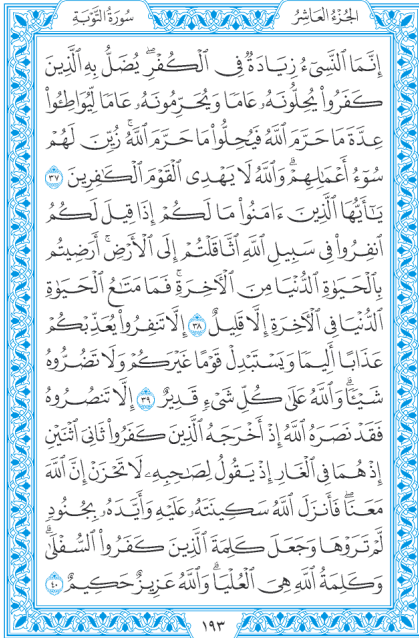 الجزء العاشر
سورة التوبة
إِنَّمَا ٱلنَّسِىٓءُ زِيَادَةٌ فِى ٱلْكُفْرِ ۖ يُضَلُّ بِهِ ٱلَّذِينَ
كَفَرُوا۟ يُحِلُّونَهُۥ عَامًا وَيُحَرِّمُونَهُۥ عَامًا لِّيُوَاطِـُٔوا۟
عِدَّةَ مَا حَرَّمَ ٱللَّهُ فَيُحِلُّوا۟ مَا حَرَّمَ ٱللَّهُ ۚ زُيِّنَ لَهُمْ
سُوٓءُ أَعْمَـٰلِهِمْ ۗ وَٱللَّهُ لَا يَهْدِى ٱلْقَوْمَ ٱلْكَـٰفِرِينَ ٣٧
يَـٰٓأَيُّهَا ٱلَّذِينَ ءَامَنُوا۟ مَا لَكُمْ إِذَا قِيلَ لَكُمُ
ٱنفِرُوا۟ فِى سَبِيلِ ٱللَّهِ ٱثَّاقَلْتُمْ إِلَى ٱلْأَرْضِ ۚ أَرَضِيتُم
بِٱلْحَيَوٰةِ ٱلدُّنْيَا مِنَ ٱلْـَٔاخِرَةِ ۚ فَمَا مَتَـٰعُ ٱلْحَيَوٰةِ
ٱلدُّنْيَا فِى ٱلْـَٔاخِرَةِ إِلَّا قَلِيلٌ ٣٨ إِلَّا تَنفِرُوا۟ يُعَذِّبْكُمْ
عَذَابًا أَلِيمًا وَيَسْتَبْدِلْ قَوْمًا غَيْرَكُمْ وَلَا تَضُرُّوهُ
شَيْـًٔا ۗ وَٱللَّهُ عَلَىٰ كُلِّ شَىْءٍ قَدِيرٌ ٣٩ إِلَّا تَنصُرُوهُ
فَقَدْ نَصَرَهُ ٱللَّهُ إِذْ أَخْرَجَهُ ٱلَّذِينَ كَفَرُوا۟ ثَانِىَ ٱثْنَيْنِ
إِذْ هُمَا فِى ٱلْغَارِ إِذْ يَقُولُ لِصَـٰحِبِهِۦ لَا تَحْزَنْ إِنَّ ٱللَّهَ
مَعَنَا ۖ فَأَنزَلَ ٱللَّهُ سَكِينَتَهُۥ عَلَيْهِ وَأَيَّدَهُۥ بِجُنُودٍ
لَّمْ تَرَوْهَا وَجَعَلَ كَلِمَةَ ٱلَّذِينَ كَفَرُوا۟ ٱلسُّفْلَىٰ ۗ
وَكَلِمَةُ ٱللَّهِ هِىَ ٱلْعُلْيَا ۗ وَٱللَّهُ عَزِيزٌ حَكِيمٌ ٤٠
١٩٣